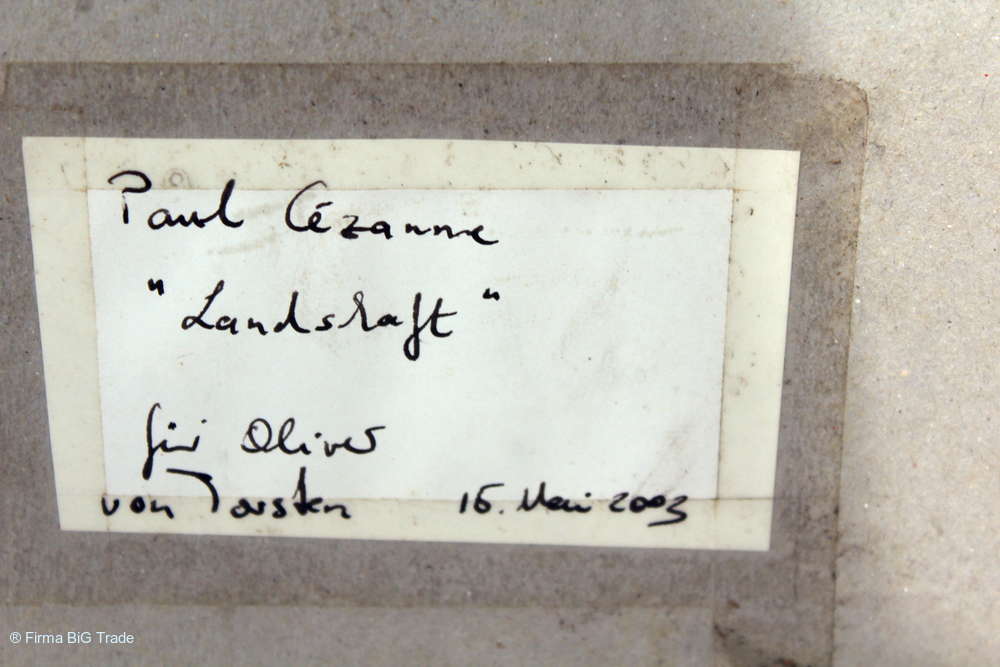 Paul Cézanne
"Landschaft"
für Oliver
von Torsten 16. Mai 2003
® Firma BiG Trade